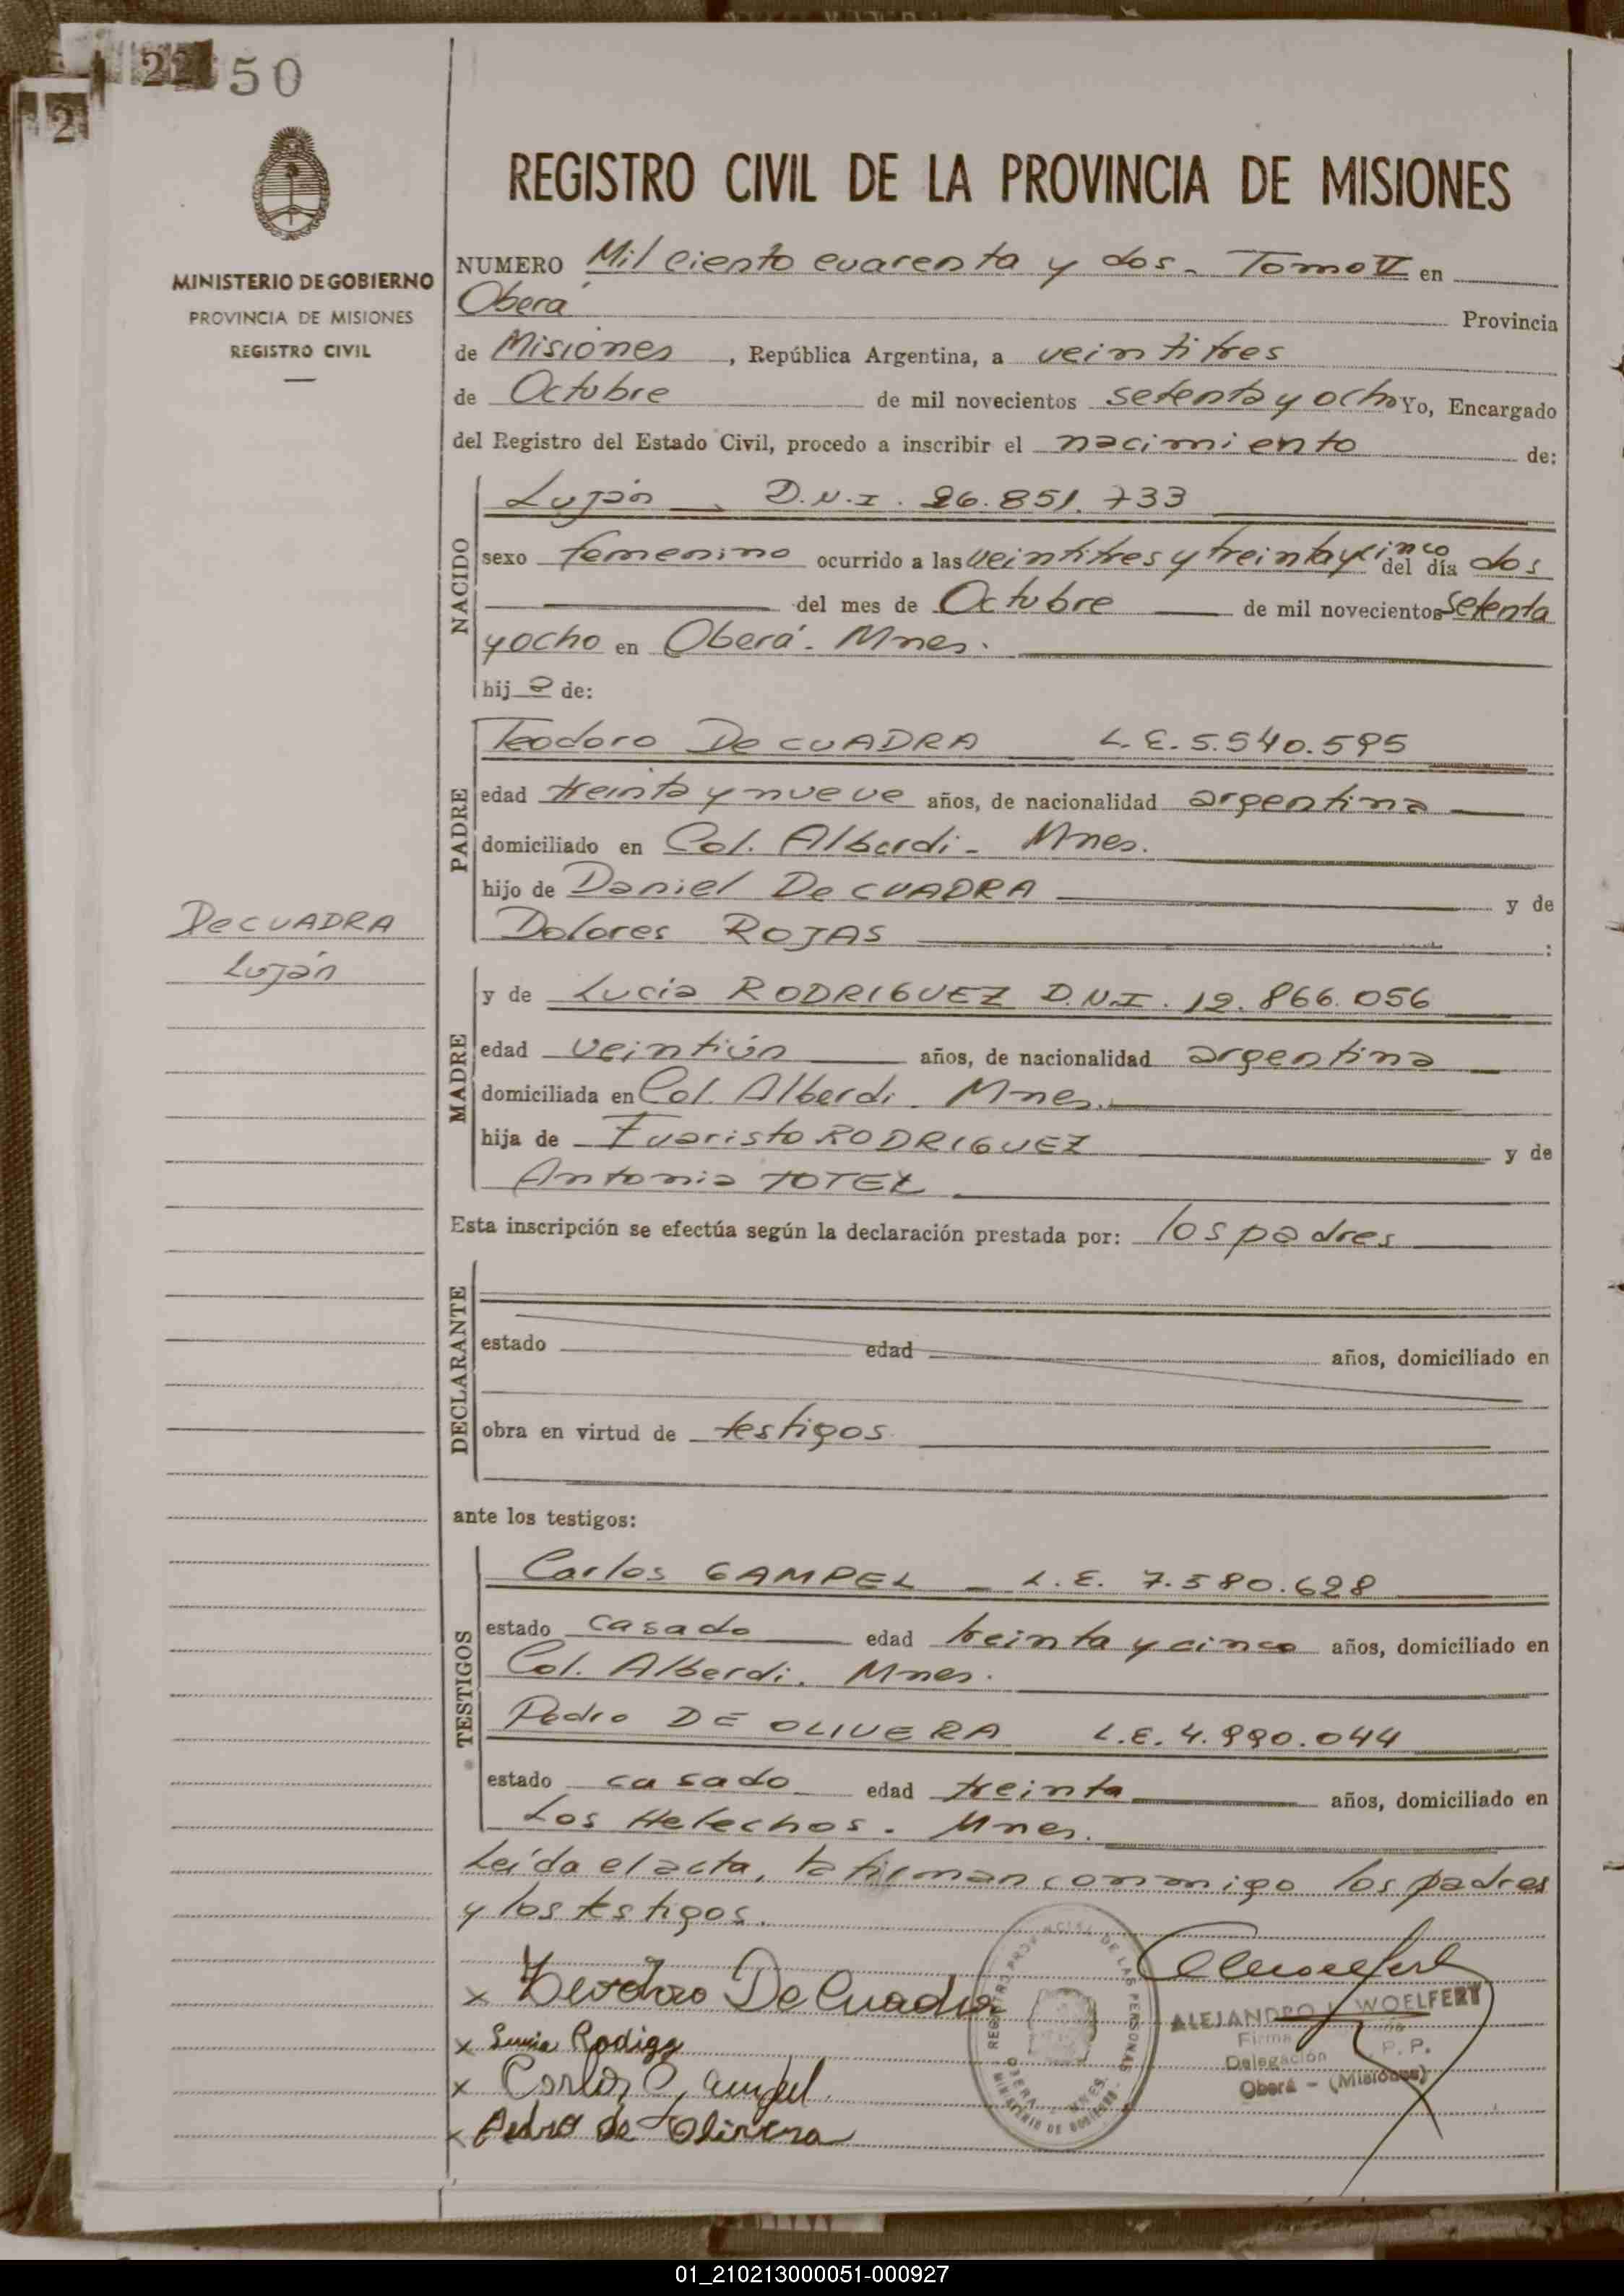 22 50
2
MINISTERIO DE GOBIERNO
PROVINCIA DE MISIONES
REGISTRO CIVIL
REGISTRO CIVIL DE LA PROVINCIA DE MISIONES
NUMERO Mil ciento cuarenta y dos - Tomo V en
Oberá Provincia
de Misiones, República Argentina, a veintitres
de Octubre de mil novecientos setenta y ocho Yo, Encargado
del Registro del Estado Civil, procedo a inscribir el nacimiento de:
NACIDO
Luján D.N.I. 26.851.733
sexo femenino ocurrido a las veintitres y treinta y cinco del día dos
del mes de Octubre de mil novecientos setenta
y ocho en Oberá. Mnes.
hija de:
PADRE
Teodoro De CUADRA L.E. 5.540.595
edad treinta y nueve años, de nacionalidad argentina
domiciliado en Col. Alberdi - Mnes.
hijo de Daniel De CUADRA y de
Dolores ROJAS :
De CUADRA
Luján
MADRE
y de Lucia RODRIGUEZ D.N.I. 12.866.056
edad veintiún años, de nacionalidad argentina
domiciliada en Col. Alberdi. Mnes.
hija de Evaristo RODRIGUEZ y de
Antonia TOTEL
Esta inscripción se efectúa según la declaración prestada por: los padres
DECLARANTE
estado edad años, domiciliado en
obra en virtud de testigos
ante los testigos:
TESTIGOS
Carlos GAMPEL - L.E. 7.580.628
estado casado edad treinta y cinco años, domiciliado en
Col. Alberdi. Mnes.
Pedro DE OLIVERA L.E. 4.990.044
estado casado edad treinta años, domiciliado en
Los Helechos. Mnes.
Leída el acta, la firman conmigo los padres
y los testigos.
x Teodoro De Cuadra
x Lucia Rodigz
x Carlos Gampel
x Pedro de Olivera
REGISTRO PROVINCIAL DE LAS PERSONAS
OBERA - MNES.
MINISTERIO DE GOBIERNO
ALEJANDRO WOELFERT
Firma
Delegación P.P.
Oberá - (Misiones)
01_210213000051-000927